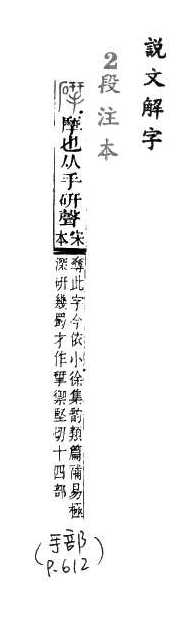 說文解字
2段注本
揅摩也从手硏聲宋本
奪此字今依小徐集韵類篇補易極
深硏幾蜀才作揅禦堅切十四部
(手部
P.612)